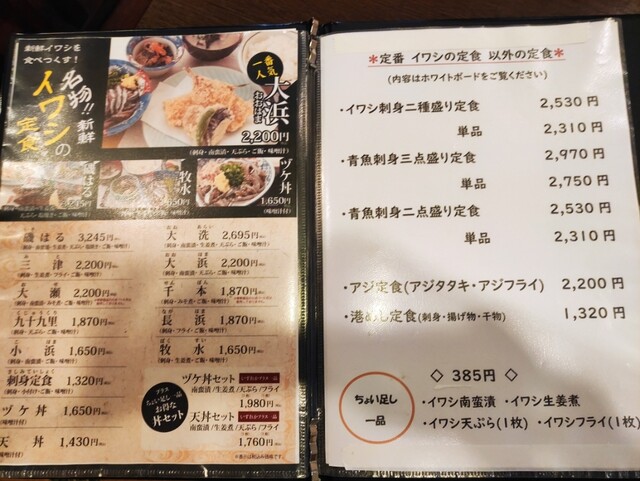 新鮮イワシを
食べつくす!
名物!! 新鮮
イワシの
定食
一番人気
大浜
おおはま
2,200円
(刺身・南蛮漬・天ぷら・ご飯・味噌汁)
磯はる
3,245円
牧水
1,650円
ヅケ丼
1,650円
(味噌汁付)
磯はる 3,245円
三津 2,200円
(刺身・生姜煮・フライ・ご飯・味噌汁)
大瀬 2,200円
九十九里 1,870円
(刺身・天ぷら・ご飯・味噌汁)
小浜 1,650円
刺身定食 1,320円
ヅケ丼 1,650円
天丼 1,430円
大洗 2,695円
大浜 2,200円
(刺身・南蛮漬・天ぷら・ご飯・味噌汁)
千本 1,870円
長浜 1,870円
(刺身・フライ・ご飯・味噌汁)
牧水 1,650円
プラス
ちょい足し一品
お役打
丼セット
ヅケ丼セット
いずれかプラス一品
南蛮漬/生姜煮/天ぷら/フライ
1,980円
天丼セット
いずれかプラス一品
南蛮漬/生姜煮/天ぷら/フライ
1,760円
*定番 イワシの定食 以外の定食*
(内容はホワイトボードをご覧ください)
・イワシ刺身二種盛り定食 2,530円
単品 2,310円
・青魚刺身三点盛り定食 2,970円
単品 2,750円
・青魚刺身二点盛り定食 2,530円
単品 2,310円
・アジ定食(アジタタキ・アジフライ) 2,200円
・港めし定食(刺身・揚げ物・干物) 1,320円
◇ 385円 ◇
ちょい足し
一品
・イワシ南蛮漬 ・イワシ生姜煮
・イワシ天ぷら(1枚) ・イワシフライ(1枚)